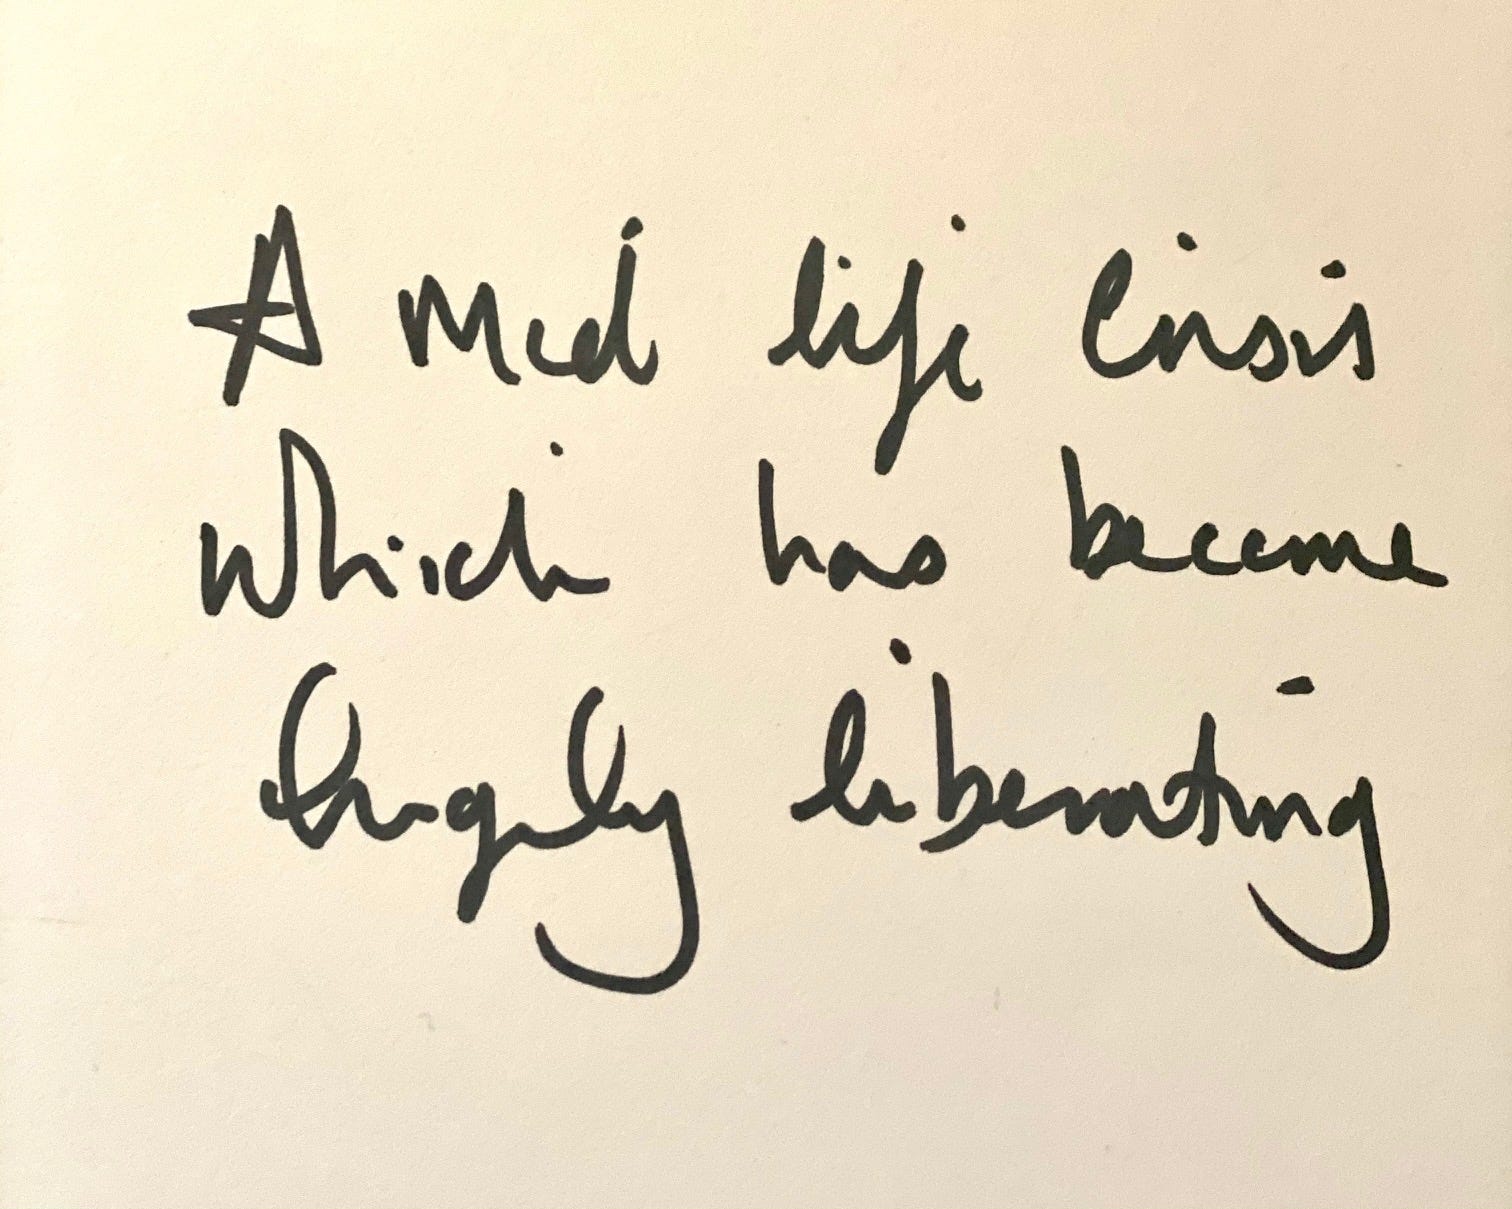 A mid life crisis
which has become
hugely liberating